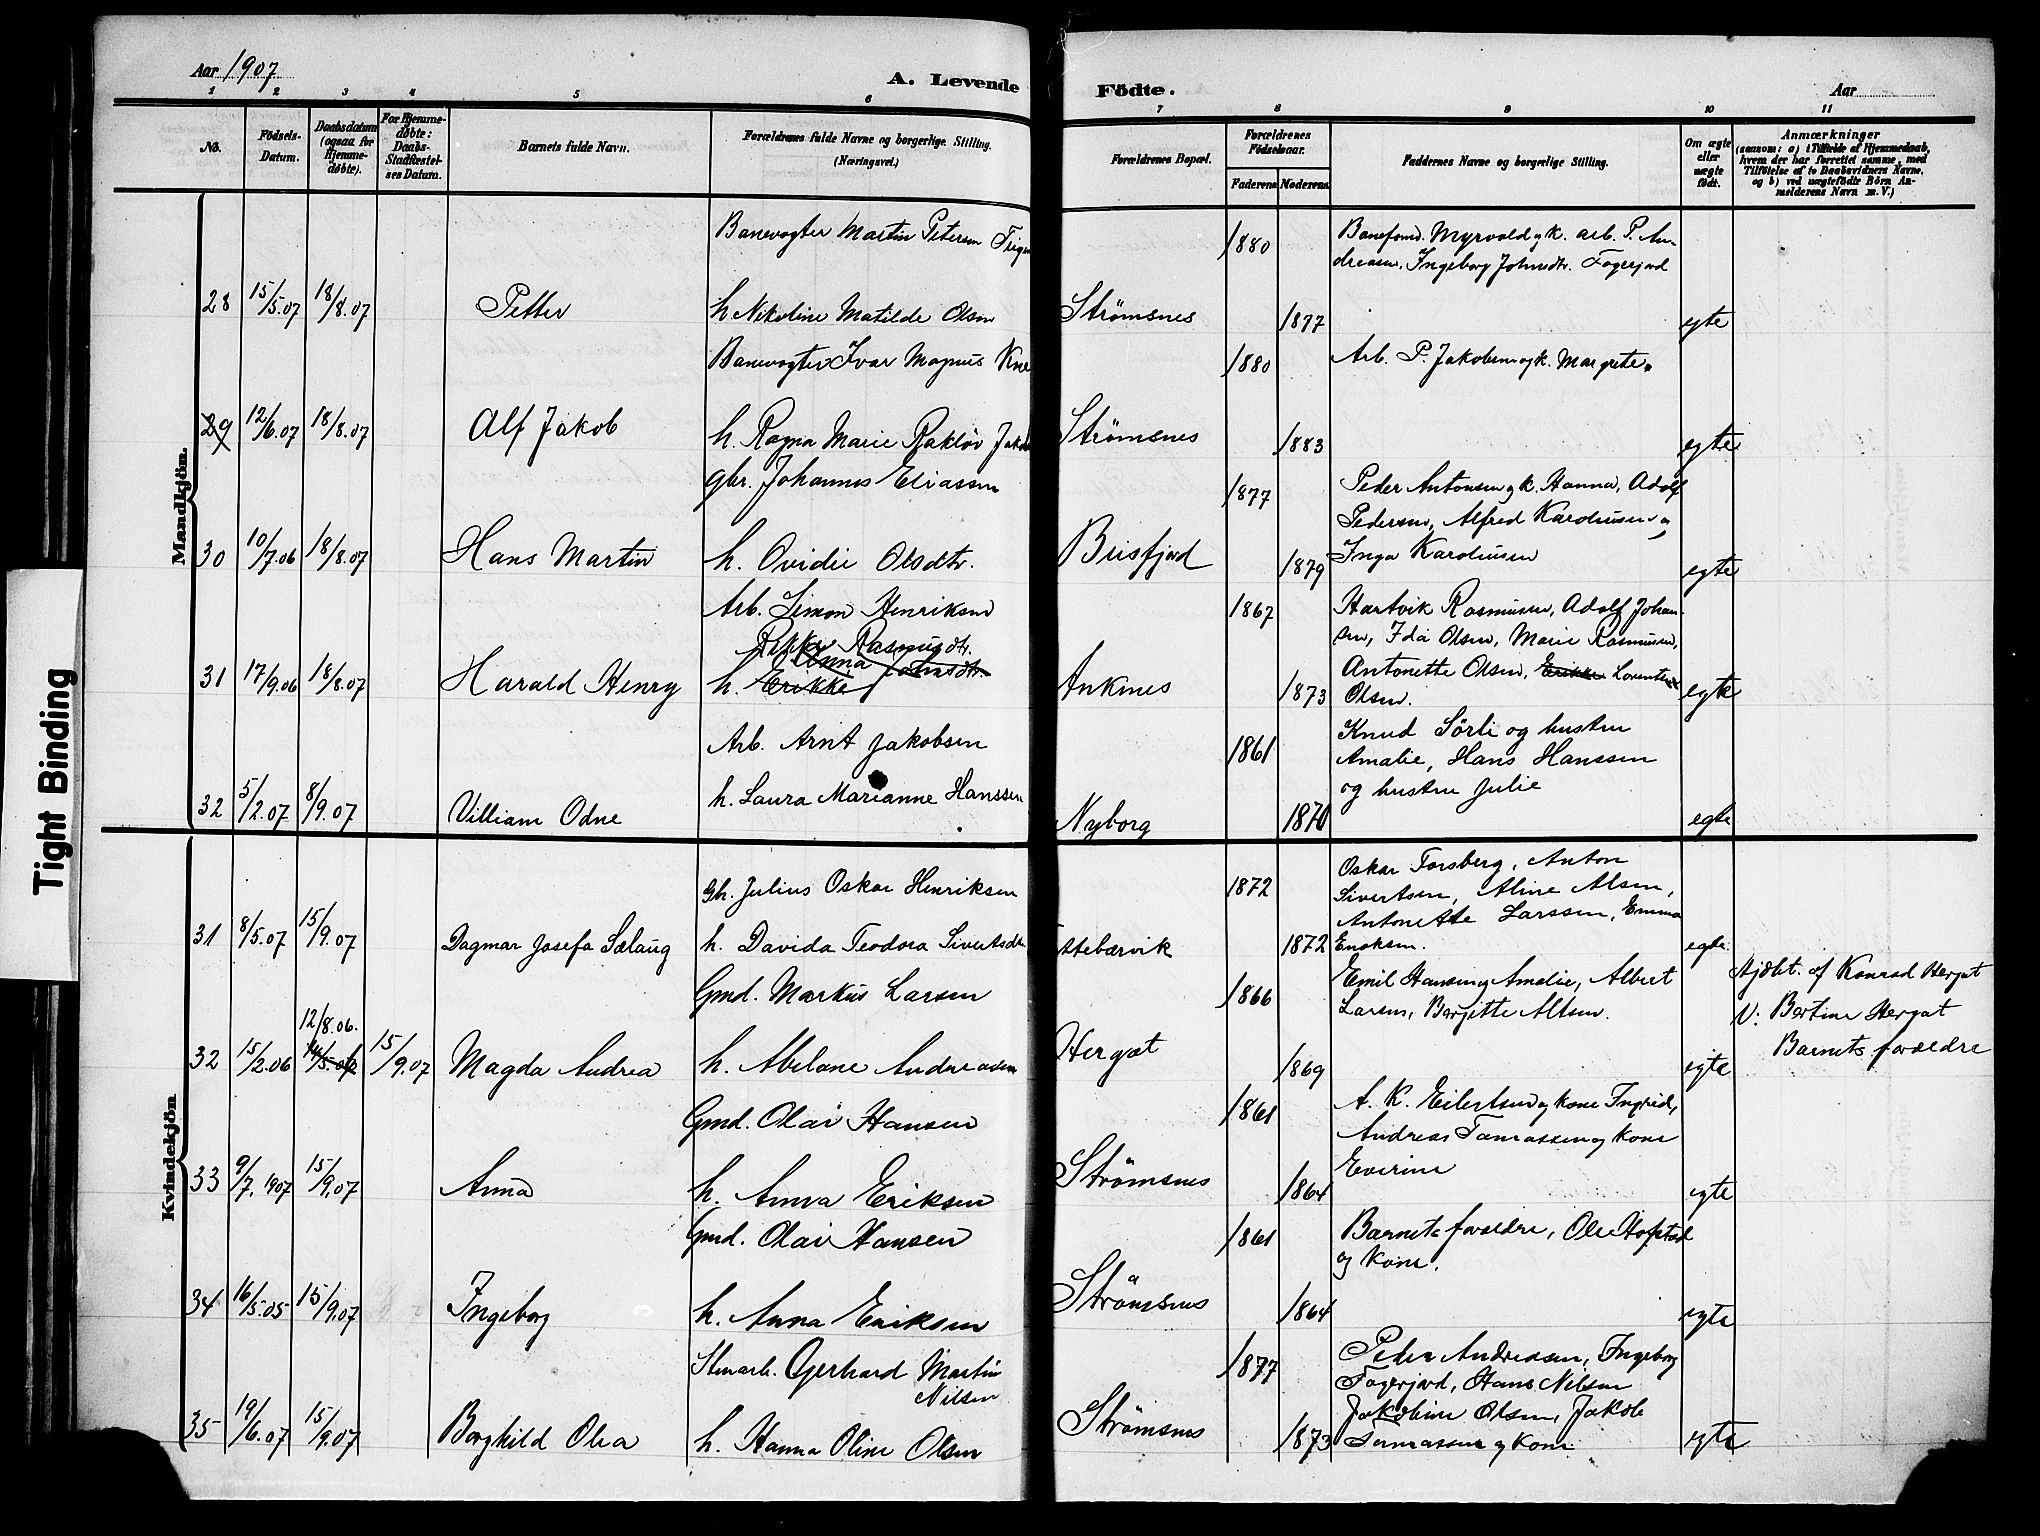 Tight Binding
Aar 1907
A. Levende Födte.
Aar
1 2 3 4 5 6 7 8 9 10 11
No.
Födsels-Datum.
Daabsdatum (ogsaa for Hjemme-döbte).
For Hjemme-döbte: Daabs-Stadfæstelses Datum.
Barnets fulde Navn.
Forældrenes fulde Navne og borgerlige Stilling. (Næringsvei.)
Forældrenes Bopæl.
Forældrenes Födselsaar.
Faderens Moderens
Faddernes Navne og borgerlige Stilling.
Om ægte eller uægte födt.
Anmærkninger
(saasom: a) i Tilfælde af Hjemmedaab,
hvem der har forrettet samme, med
Tilföielse af to Daabsvidners Navne,
og b) ved uægtefödte Börn An-
melderens Navn m. V.)
Mandkjön.
Banevogter Martin Petersen 1880 Banefomd. Myrvold og k. arb. P. An-
dreasen, Ingeborg Johnsdtr. Fagerjord
28 15/5.07 18/8.07 Petter h Nikoline Matilde Olsen Strömsnes 1877 egte
Banevogter Ivar Magnus 1880 Arb. P. Jakobsen og k. Margrete.
29 12/6.07 18/8.07 Alf Jakob h. Ragna Marie Strömsnes 1883 egte
gbr. Johannes Eliassen 1877 Peder Antonsen og k. Hanna, Adolf
Pedersen, Alfred Karoliussen og
30 10/7.06 18/8.07 Hans Martin h. Ovidie Olsdtr. Beisfjord 1879 Inga Karoliussen egte
Arb. Simon Henriksen 1867 Hartvik Rasmussen, Adolf Johan-
Rikke Rasmusdtr. sen, Ida Olsen, Marie Rasmussen,
31 17/9.06 18/8.07 Harald Henry h. Erikke Anna Ankenes 1873 Antonette Olsen, Erikke Lorentse
Olsen. egte
Arb. Arnt Jakobsen 1861 Knud Sörli og hustru
Amalie, Hans Hanssen
32 5/2.07 8/9.07 Villiam Odne h. Laura Marianne Hanssen Nyborg 1870 og hustru Julie egte
Kvindekjön
Gb. Julius Oskar Henriksen 1872 Oskar Forsberg, Anton
Sivertsen, Aline Alsen,
Antonette Larssen, Emma
31 8/5.07 15/9.07 Dagmar Josefa Sølaug h. Davida Teodora Sivertsdtr. 1872 Enoksen. egte
Gmd. Markus Larsen 1866 Emil Hansen og Amalie, Albert Hjdbt. af Konrad Hergot
Larsen, Bergitte Altsen. V: Bertine Hergot
12/8.06. Barnets forældre
32 15/2.06 15/9.07 Magda Andrea h. Abelone Andreasen Hergot 1869 egte
Gmd. Olai Hansen 1861 A. K. Eilertsen og kone Ingrid,
Andreas Tomassen og kone
33 9/7. 1907 15/9.07 Anna h. Anna Eriksen Strömsnes 1864 Everine egte
Gmd. Olai Hansen 1861 Barnets forældre, Ole Hofstad
og kone.
34 16/5.05 15/9.07 Ingeborg h. Anna Eriksen Strömsnes 1864 egte
Stenarb. Gerhard Martin Nilsen 1877 Peder Andreasen, Ingeborg
Fagerjord, Hans Nilsen
35 19/6.07 15/9.07 Borghild Olea h. Hanna Oline Olsen Strömsnes 1873 Jakobine Olsen, Jakob
Tomassen og kone egte